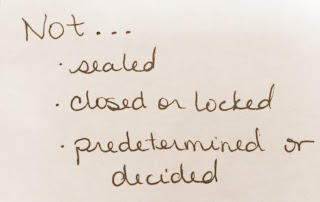 Not...
· sealed
· closed or locked
· predetermined or
decided